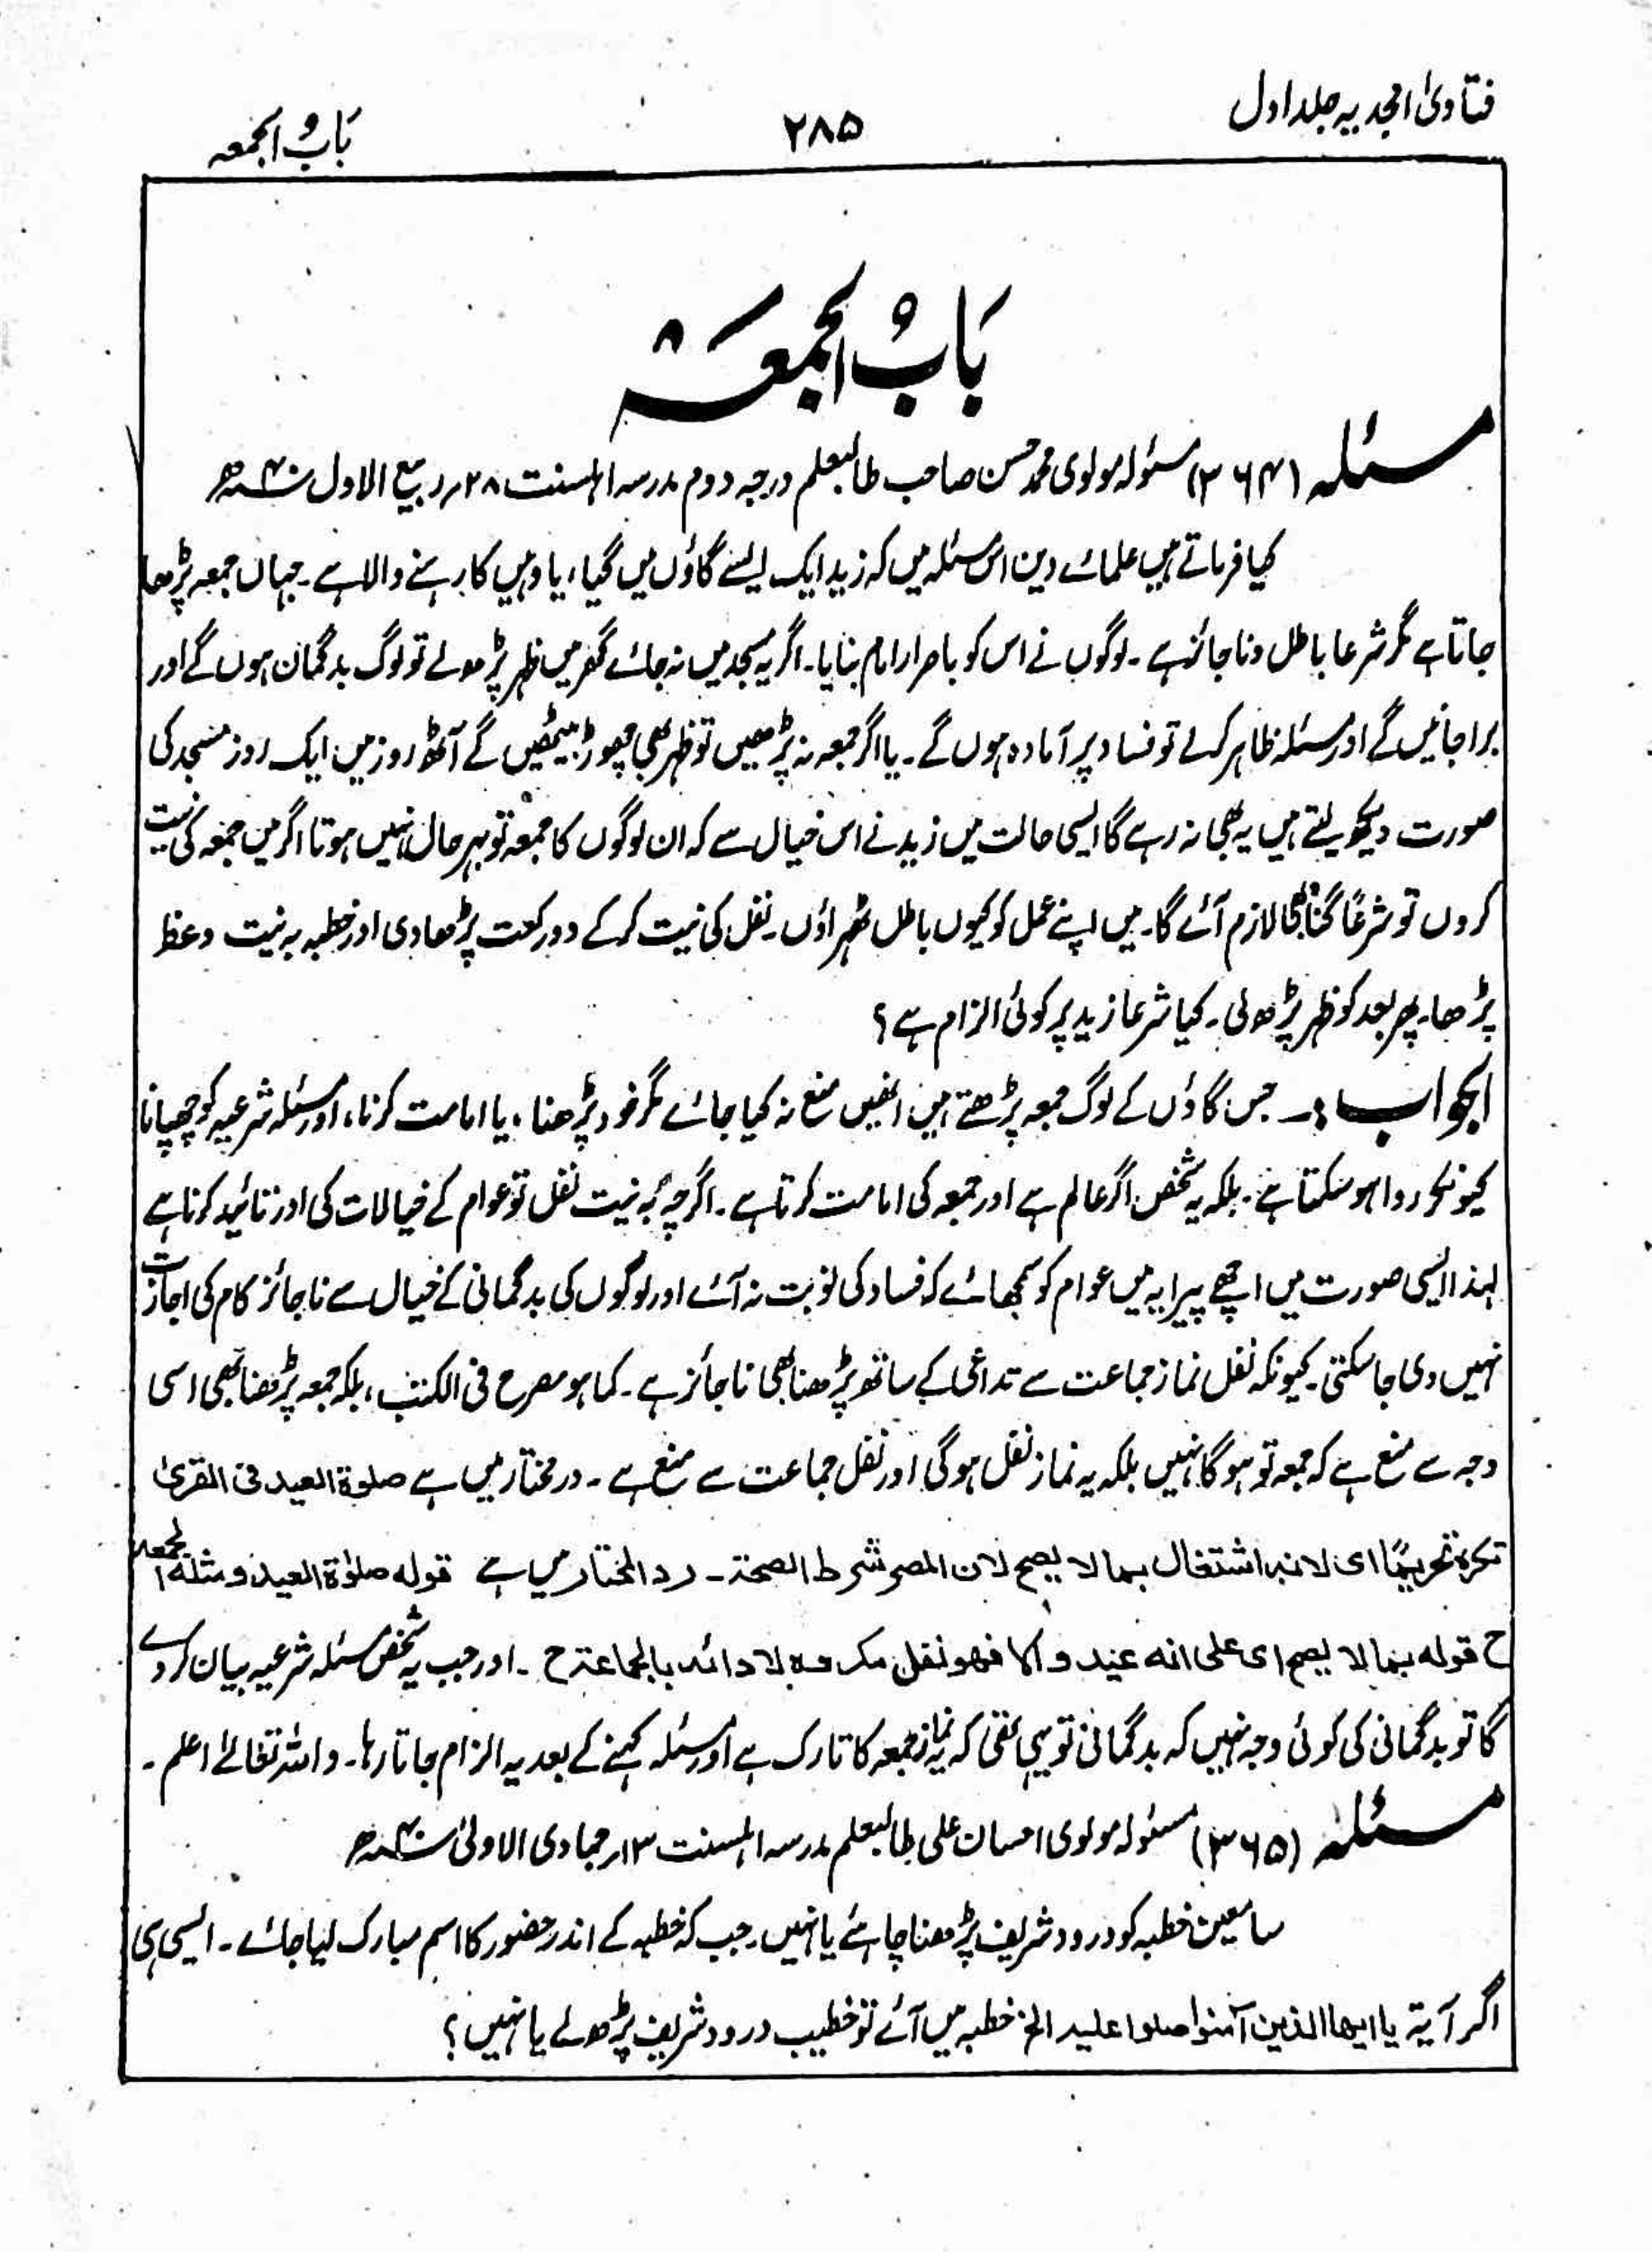 فتاویٰ امجدیہ جلد اول
۲۸۵
بَابُ الجمعہ
بَابُ الجمعۃ
مسئلہ (۳۶۴) مسئولہ مولوی محمد حسن صاحب طالبعلم درجہ دوم مدرسہ اہلسنت ۲۸؍ ربیع الاول
کیا فرماتے ہیں علمائے دین اس مسئلہ میں کہ زید ایک ایسے گاؤں میں گیا، یا وہیں کا رہنے والا ہے۔ جہاں جمعہ پڑھا
جاتا ہے مگر شرعا باطل و ناجائز ہے۔ لوگوں نے اس کو باصرار امام بنایا۔ اگر یہ مسجد میں نہ جائے گھر میں ظہر پڑھ لے تو لوگ بدگمان ہوں گے اور
برا جانیں گے اور مسئلہ ظاہر کرے تو فساد پر آمادہ ہوں گے۔ یا اگر جمعہ نہ پڑھیں تو ظہر بھی چھوڑ بیٹھیں گے آٹھ روز میں ایک روز مسجد کی
صورت دیکھ لیتے ہیں یہ بھی نہ رہے گا ایسی حالت میں زید نے اس خیال سے کہ ان لوگوں کا جمعہ تو بہر حال نہیں ہوتا اگر میں جمعہ کی نیت
کروں تو شرعًا گناہ بھی لازم آئے گا۔ میں اپنے عمل کو کیوں باطل ٹھہراؤں۔ نفل کی نیت کرکے دو رکعت پڑھا دی اور خطبہ بہ نیت وعظ
پڑھا۔ پھر بعد کو ظہر پڑھ لی۔ کیا شرعا زید پر کوئی الزام ہے؟
الجواب :۔ جس گاؤں کے لوگ جمعہ پڑھتے ہیں انھیں منع نہ کیا جائے مگر خود پڑھنا، یا امامت کرنا، اور مسئلہ شرعیہ کو چھپانا
کیونکر روا ہو سکتا ہے۔ بلکہ یہ شخص اگر عالم ہے اور جمعہ کی امامت کرتا ہے۔ اگرچہ بہ نیت نفل تو عوام کے خیالات کی اور تائید کرتا ہے
لہذا ایسی صورت میں اچھے پیرایہ میں عوام کو سمجھائے کہ فساد کی نوبت نہ آئے اور لوگوں کی بدگمانی کے خیال سے ناجائز کام کی اجازت
نہیں دی جا سکتی۔ کیونکہ نفل نماز جماعت سے تداعی کے ساتھ پڑھنا بھی ناجائز ہے۔ کما ہو مصرح فی الکتب، بلکہ جمعہ پڑھنا بھی اسی
وجہ سے منع ہے کہ جمعہ تو ہوگا نہیں بلکہ یہ نماز نفل ہوگی اور نفل جماعت سے منع ہے۔ در مختار میں ہے صلوۃ العید فی القریٰ
تکرہ تحریمًا ای لانہ اشتغال بما لا یصح لان المصر شرط الصحۃ۔ رد المختار میں ہے قولہ صلوٰۃ العید ومثلہ الجمعہ
ح قولہ بما لا یصح ای علی انہ عید والا فھو نفل مکروہ لادائہ بالجماعۃ ح۔ اور جب یہ شخص مسئلہ شرعیہ بیان کر دے
گا تو بدگمانی کی کوئی وجہ نہیں کہ بدگمانی تو یہی تھی کہ یہ نماز جمعہ کا تارک ہے اور مسئلہ کہنے کے بعد یہ الزام جاتا رہا۔ واللہ تعالےٰ اعلم۔
مسئلہ (۳۶۵) مسئولہ مولوی احسان علی طالبعلم مدرسہ اہلسنت ۱۳؍ جمادی الاولیٰ
سامعین خطبہ کو درود شریف پڑھنا چاہئے یا نہیں۔ جب کہ خطبہ کے اندر حضور کا اسم مبارک لیا جائے۔ ایسی ہی
اگر آیۃ یا ایھا الذین آمنوا صلوا علیہ الخ خطبہ میں آئے تو خطیب درود شریف پڑھ لے یا نہیں؟